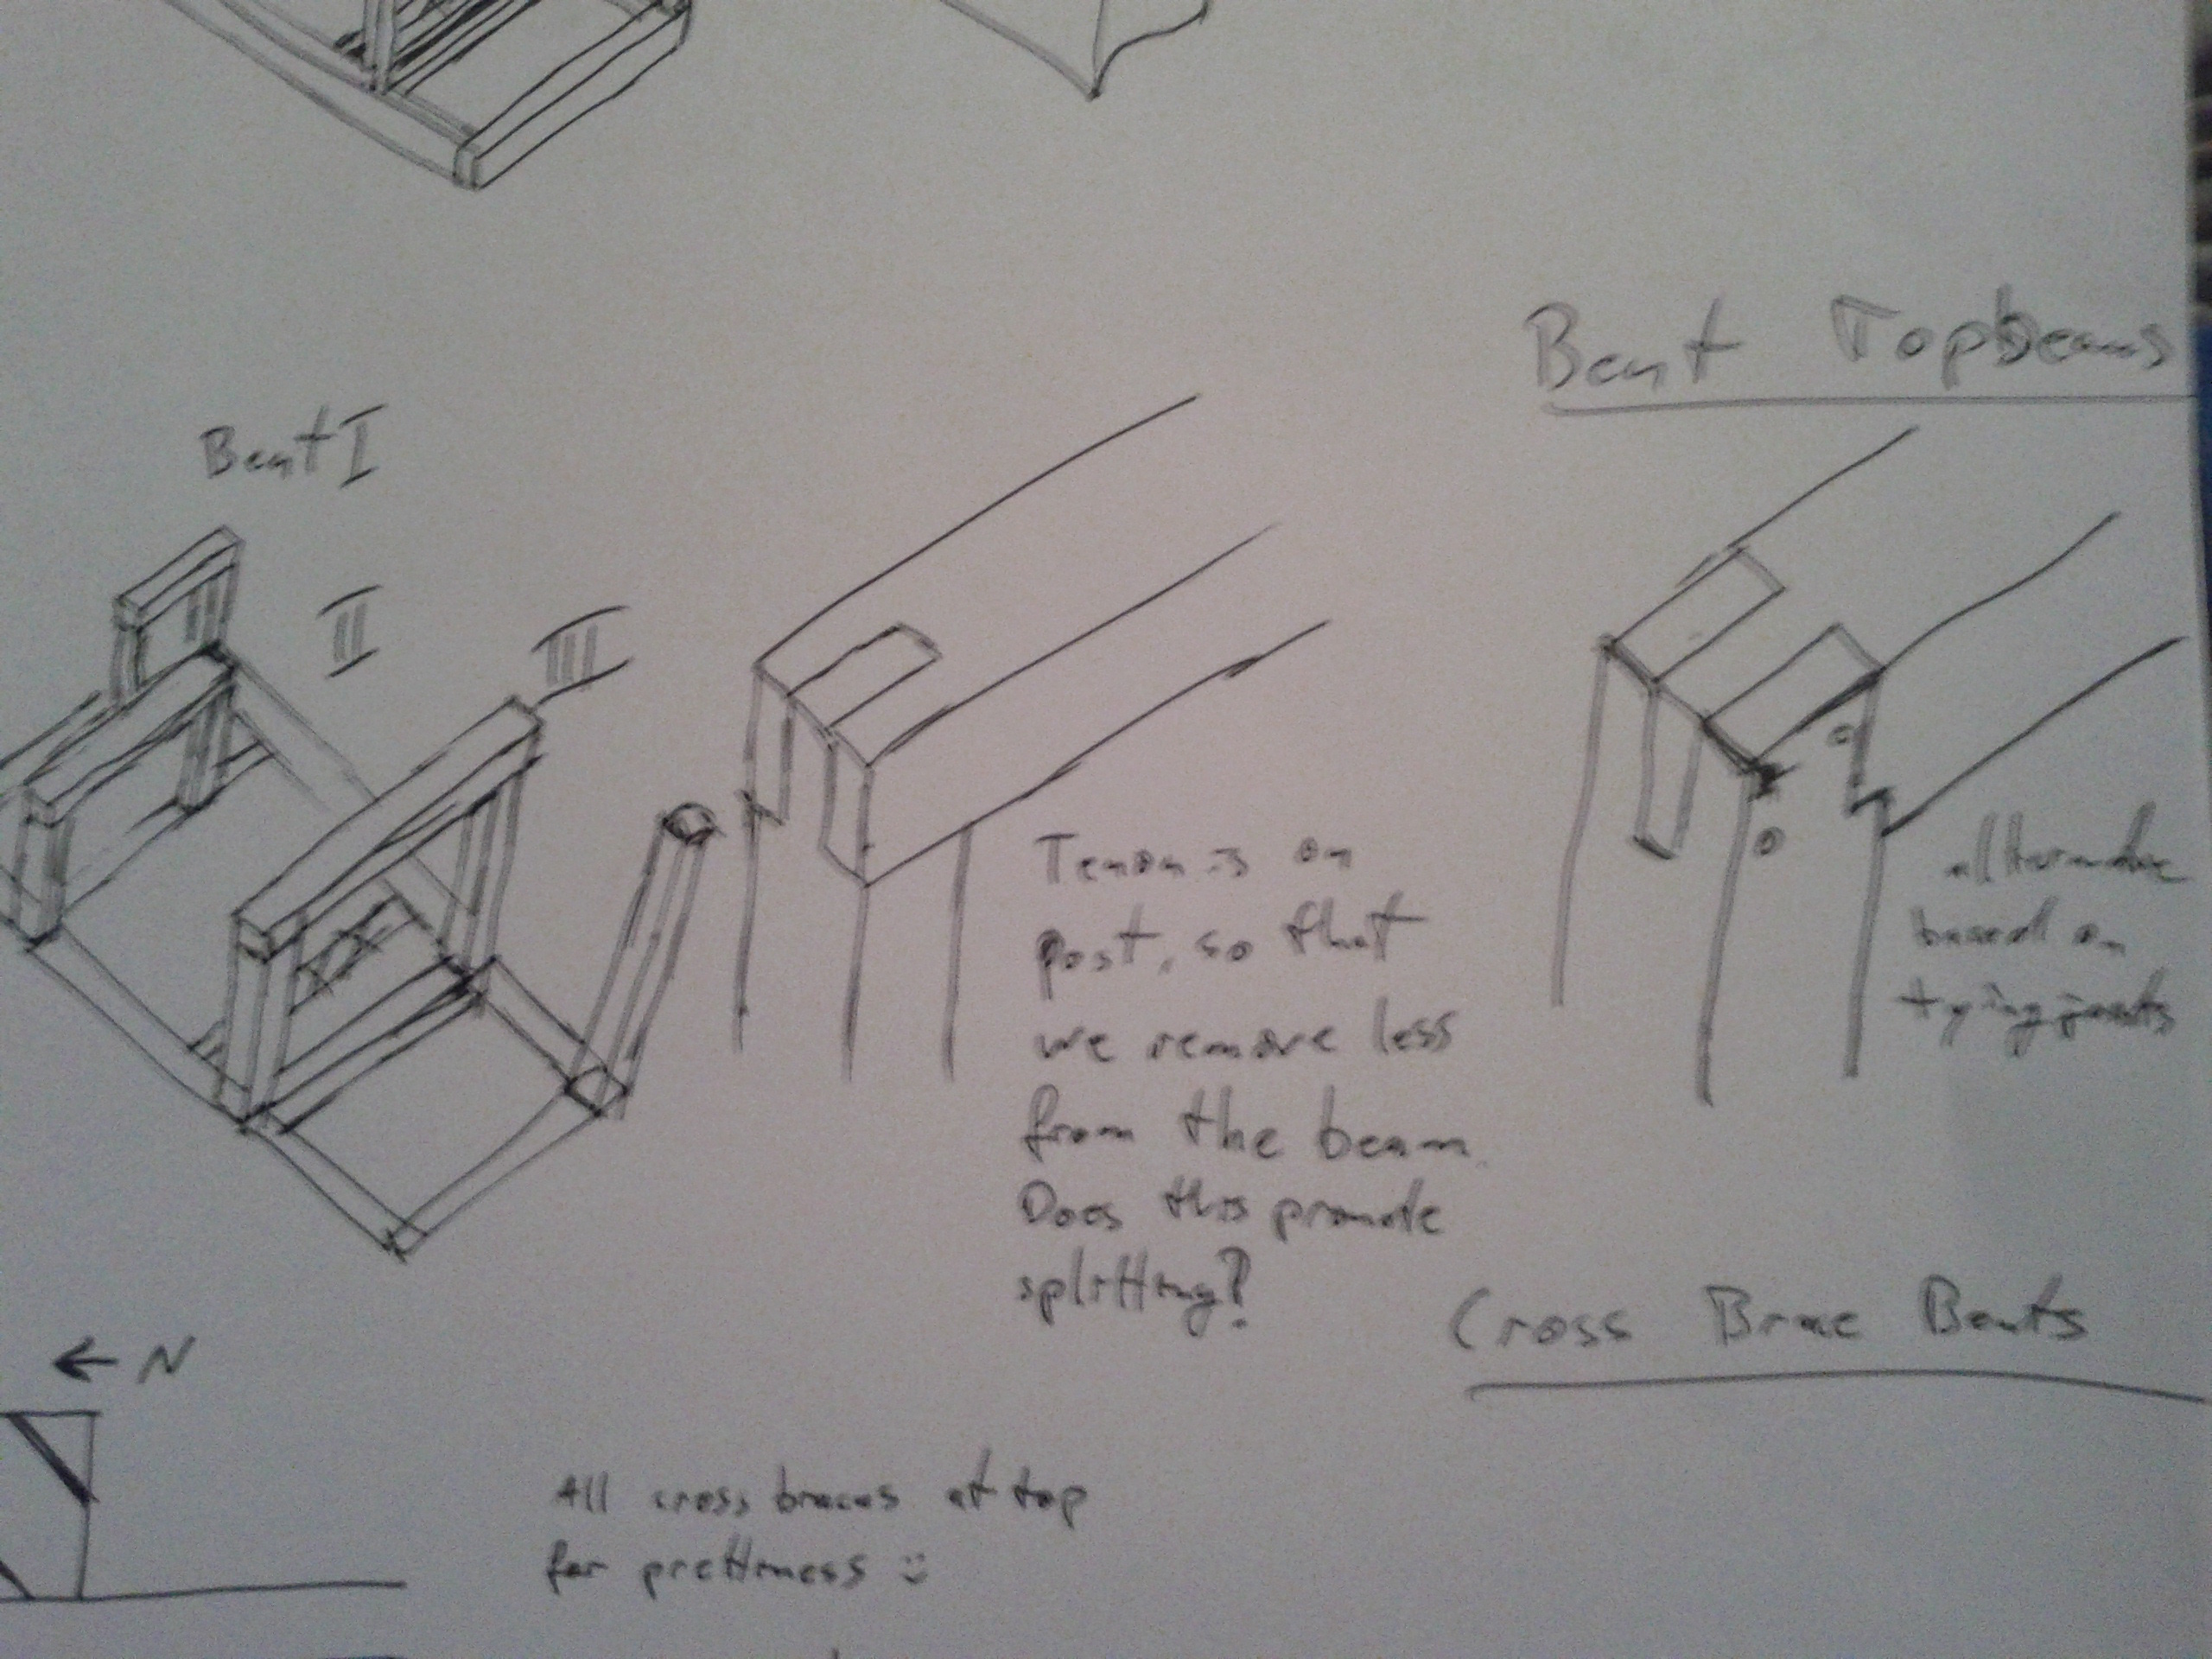 Bent Topbeams
Bent I
II
III
Tenon is on
post, so that
we remove less
from the beam.
Does this promote
splitting?
alternative
based on
tying joints
Cross Brace Bents
← N
All cross braces at top
for prettiness :)